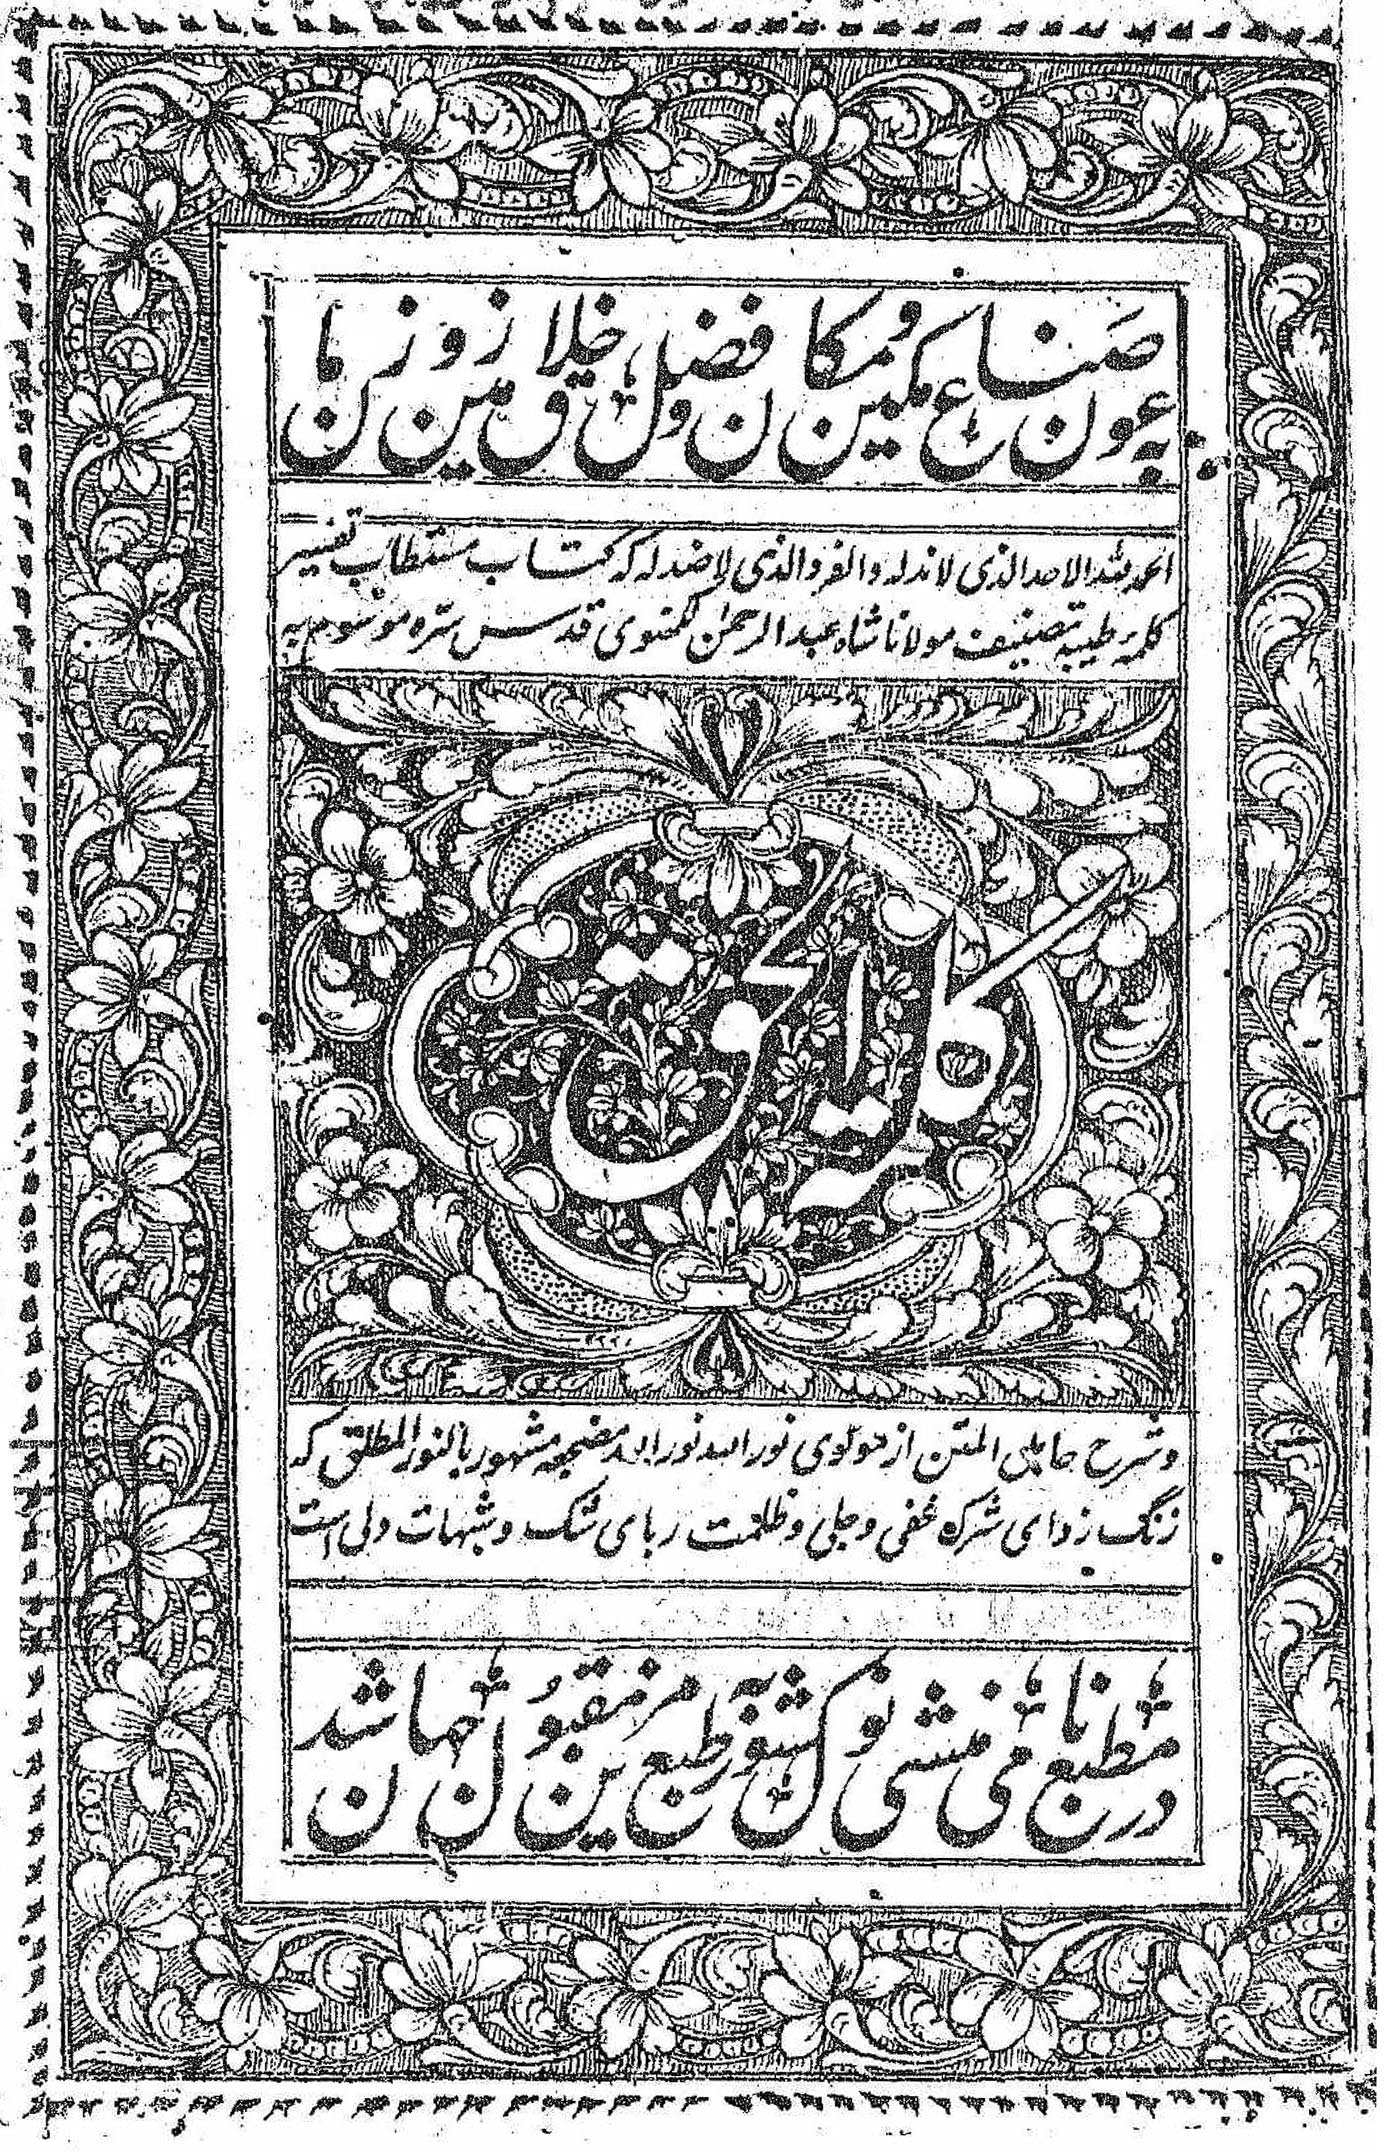 به عون صناع مکین و مکان و فضل خلاق زمین و زمان
الحمد لله الاحد الذی لا ند له والفرد الذی لا ضد له که کتاب مستطاب تفسیر
کلمهٔ طیبه تصنیف مولانا شاه عبد الرحمٰن لکهنوی قدس سره موسوم به
کلمة الحق
وشرح حامل المتن از مولوی نور الله نور الله مضجعه مشهور بالنور المطلق که
زنگ زدای شرک خفی و جلی و ظلمت ربای شک و شبهات ولی است
در مطبع نامی منشی نولکشور به طبع مزین مقبول جهان شد